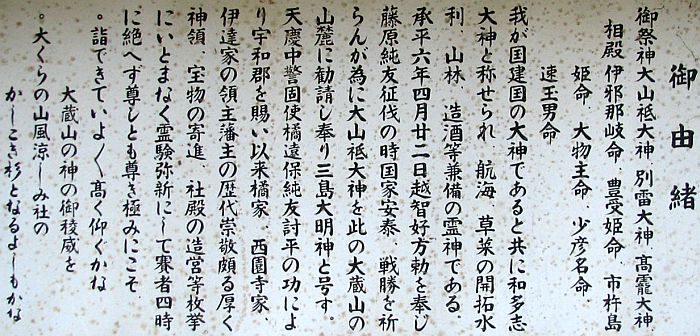 御由緒
御祭神大山祇大神、別雷大神、高龗大神
相殿 伊邪那岐命、豊受姫命、市杵島
姫命、大物主命、少彦名命
速玉男命
我が国建国の大神であると共に和多志
大神と称せられ、航海、草菜の開拓水
利、山林、造酒等兼備の霊神である。
承平六年四月廿二日越智好方勅を奉じ
藤原純友征伐の時国家安泰、戦勝を祈
らんが為に大山祇大神を此の大蔵山の
山麓に勧請し奉り三島大明神と号す。
天慶中警固使橘遠保純友討平の功によ
り宇和郡を賜い以来橘家、西園寺家
伊達家の領主藩主の歴代崇敬頗る厚く
神領、宝物の寄進、社殿の造営等枚挙
にいとまなく霊験弥新にして賽者四時
に絶へず尊しとも尊き極みにこそ
。詣できていよ〱高く仰ぐかな
大蔵山の神の御稜威を
。大くらの山風涼しみ社の
かしこき杉となるよしもかな